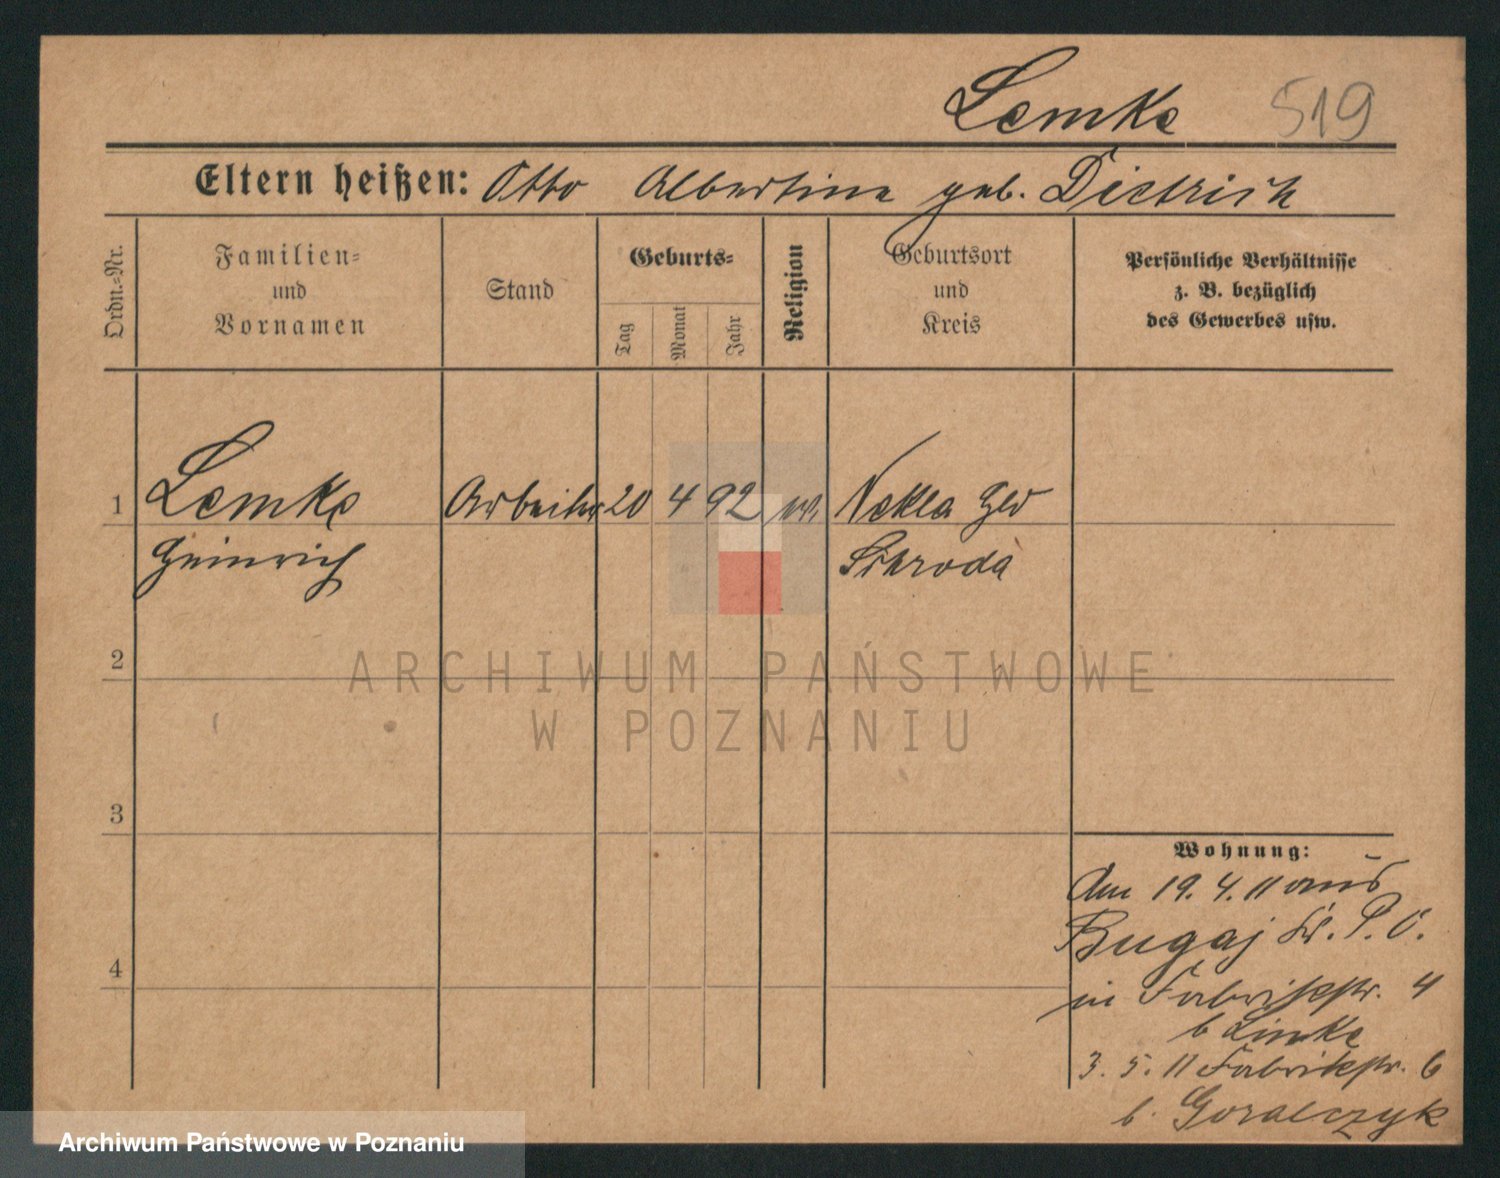 Lemke 519
Eltern heißen: Otto Albertine geb. Dietrich
Ordn.=Nr.
Familien=
und
Vornamen
Stand
Geburts=
Tag
Monat
Jahr
Religion
Geburtsort
und
Kreis
Persönliche Verhältnisse
z. B. bezüglich
des Gewerbes usw.
1 Lemke Arbeiter 20 4 92 Nekla
Heinrich Schroda
2
3
4
Wohnung:
Am 19. 4. 11 aus
Bugaj Kr. P. O.
in Fabrikstr. 4
b Linke
3. 5. 11 Fabrikstr. 6
b. Goralczyk
ARCHIWUM PAŃSTWOWE
W POZNANIU
Archiwum Państwowe w Poznaniu